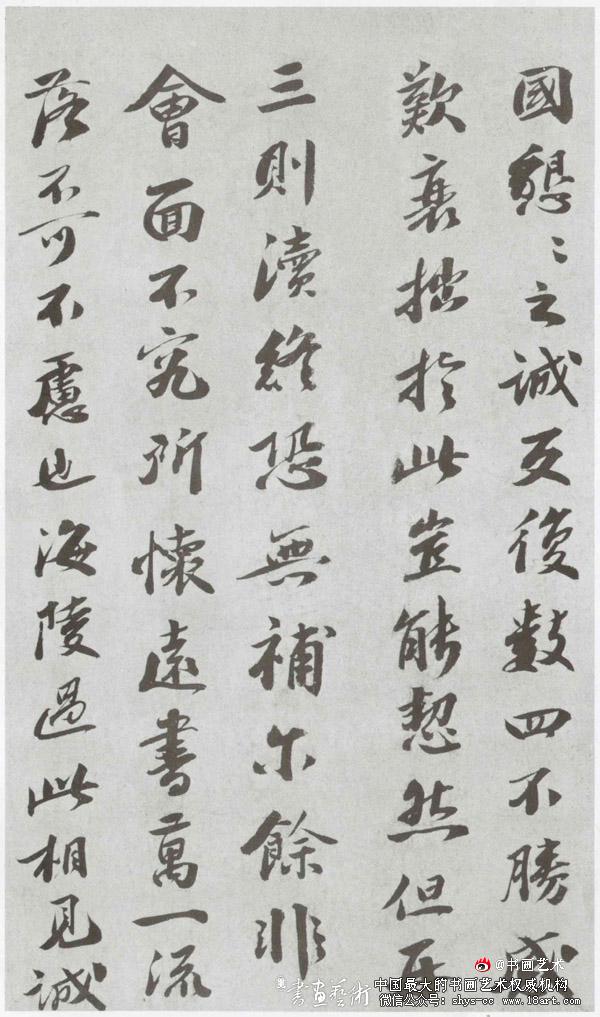 國懇〻之誠反復數四不勝感
歎衰拙於此豈能恝然但再
三則瀆終恐無補尔餘非
會面不究所懷遠書萬一流
落不可不慮也海陵過此相見誠
@书画艺术
書畫藝術
中国最大的书画艺术权威机构
微信公众号:shys-cc www.18art.com